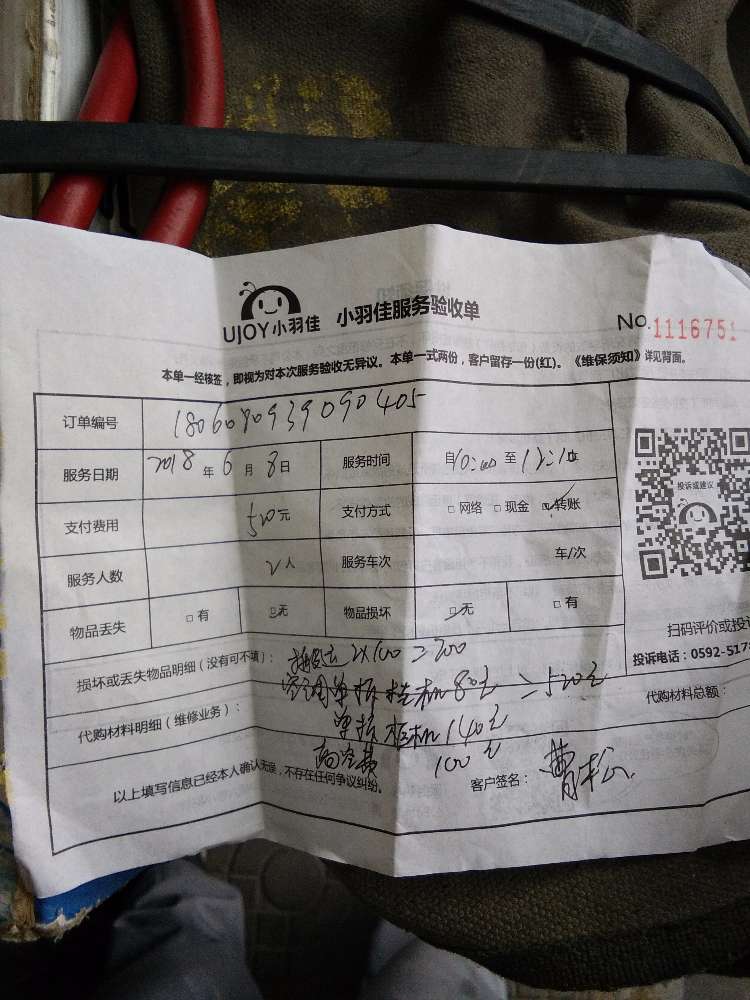 UJOY小羽佳 小羽佳服务验收单
No.1116751
本单一经核签，即视为对本次服务验收无异议。本单一式两份，客户留存一份(红)。《维保须知》详见背面。
订单编号 180608093909040​5
服务日期 2018年6月8日 服务时间 自10:00至12:10
支付费用 520元 支付方式 □网络 □现金 ☑转账
服务人数 2人 服务车次 车/次
物品丢失 □有 ☑无 物品损坏 ☑无 □有
投诉或建议
扫码评价或投诉
投诉电话：0592-517
损坏或丢失物品明细（没有可不填）： 2X100=200
空调单拆挂机80元=520元
代购材料明细（维修业务）： 单拆柜机140元
代购材料总额：
100元
以上填写信息已经本人确认无误，不存在任何争议纠纷。 客户签名：